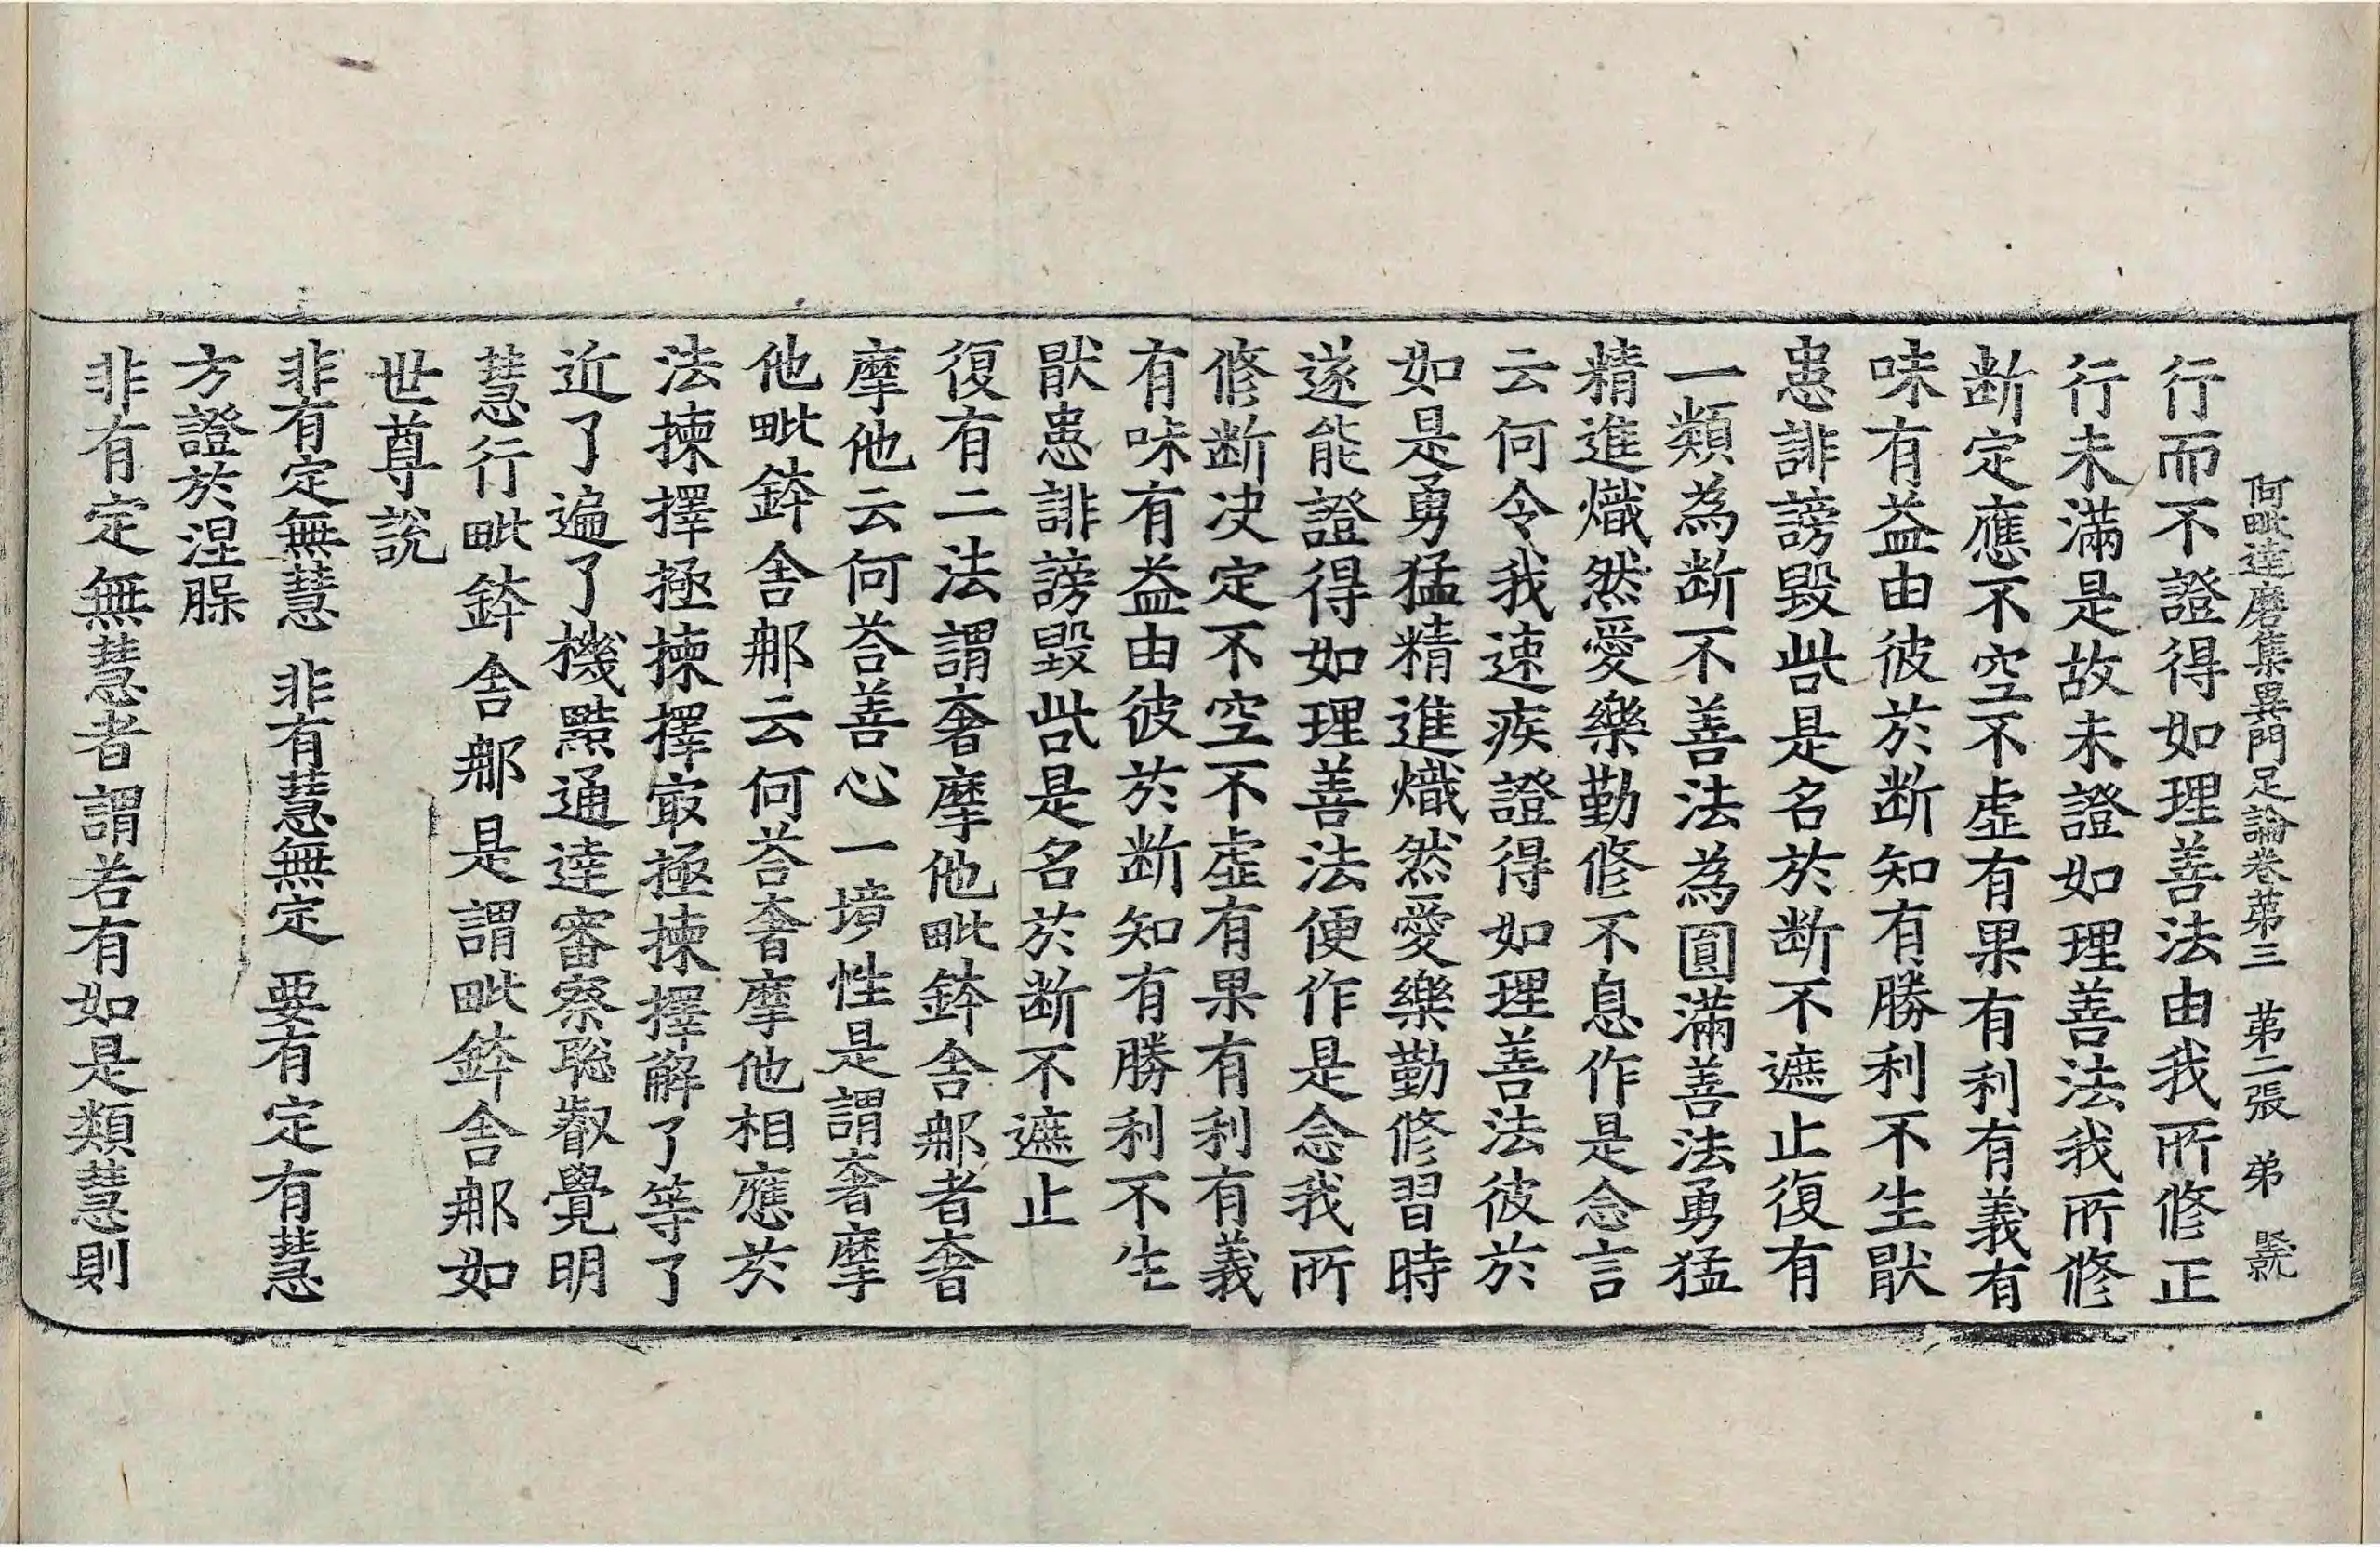 阿毗達磨集異門足論卷苐三　苐二張　弟　𥪡
行而不證得如理善法由我所修正
行未滿是故未證如理善法我所修
断定應不空不虛有果有利有義有
味有益由彼於断知有勝利不生猒
患誹謗毀呰是名於断不遮止復有
一類為断不善法為圓滿善法勇猛
精進熾然愛樂勤修不息作是念言
云何令我速疾證得如理善法彼於
如是勇猛精進熾然愛樂勤修習時
遂能證得如理善法便作是念我所
修断决定不空不虛有果有利有義
有味有益由彼於断知有勝利不生
猒患誹謗毀呰是名於断不遮止
復有二法謂奢摩他毗鉢舍那者奢
摩他云何荅善心一境性是謂奢摩
他毗鉢舍那云何荅奢摩他相應於
法揀擇極揀擇㝡極揀擇解了等了
近了遍了機黠通達審察聡叡覺明
慧行毗鉢舍那是謂毗鉢舍那如
世尊說
非有定無慧　非有慧無定　要有定有慧
方證於涅槃
非有定無慧者謂若有如是類慧則